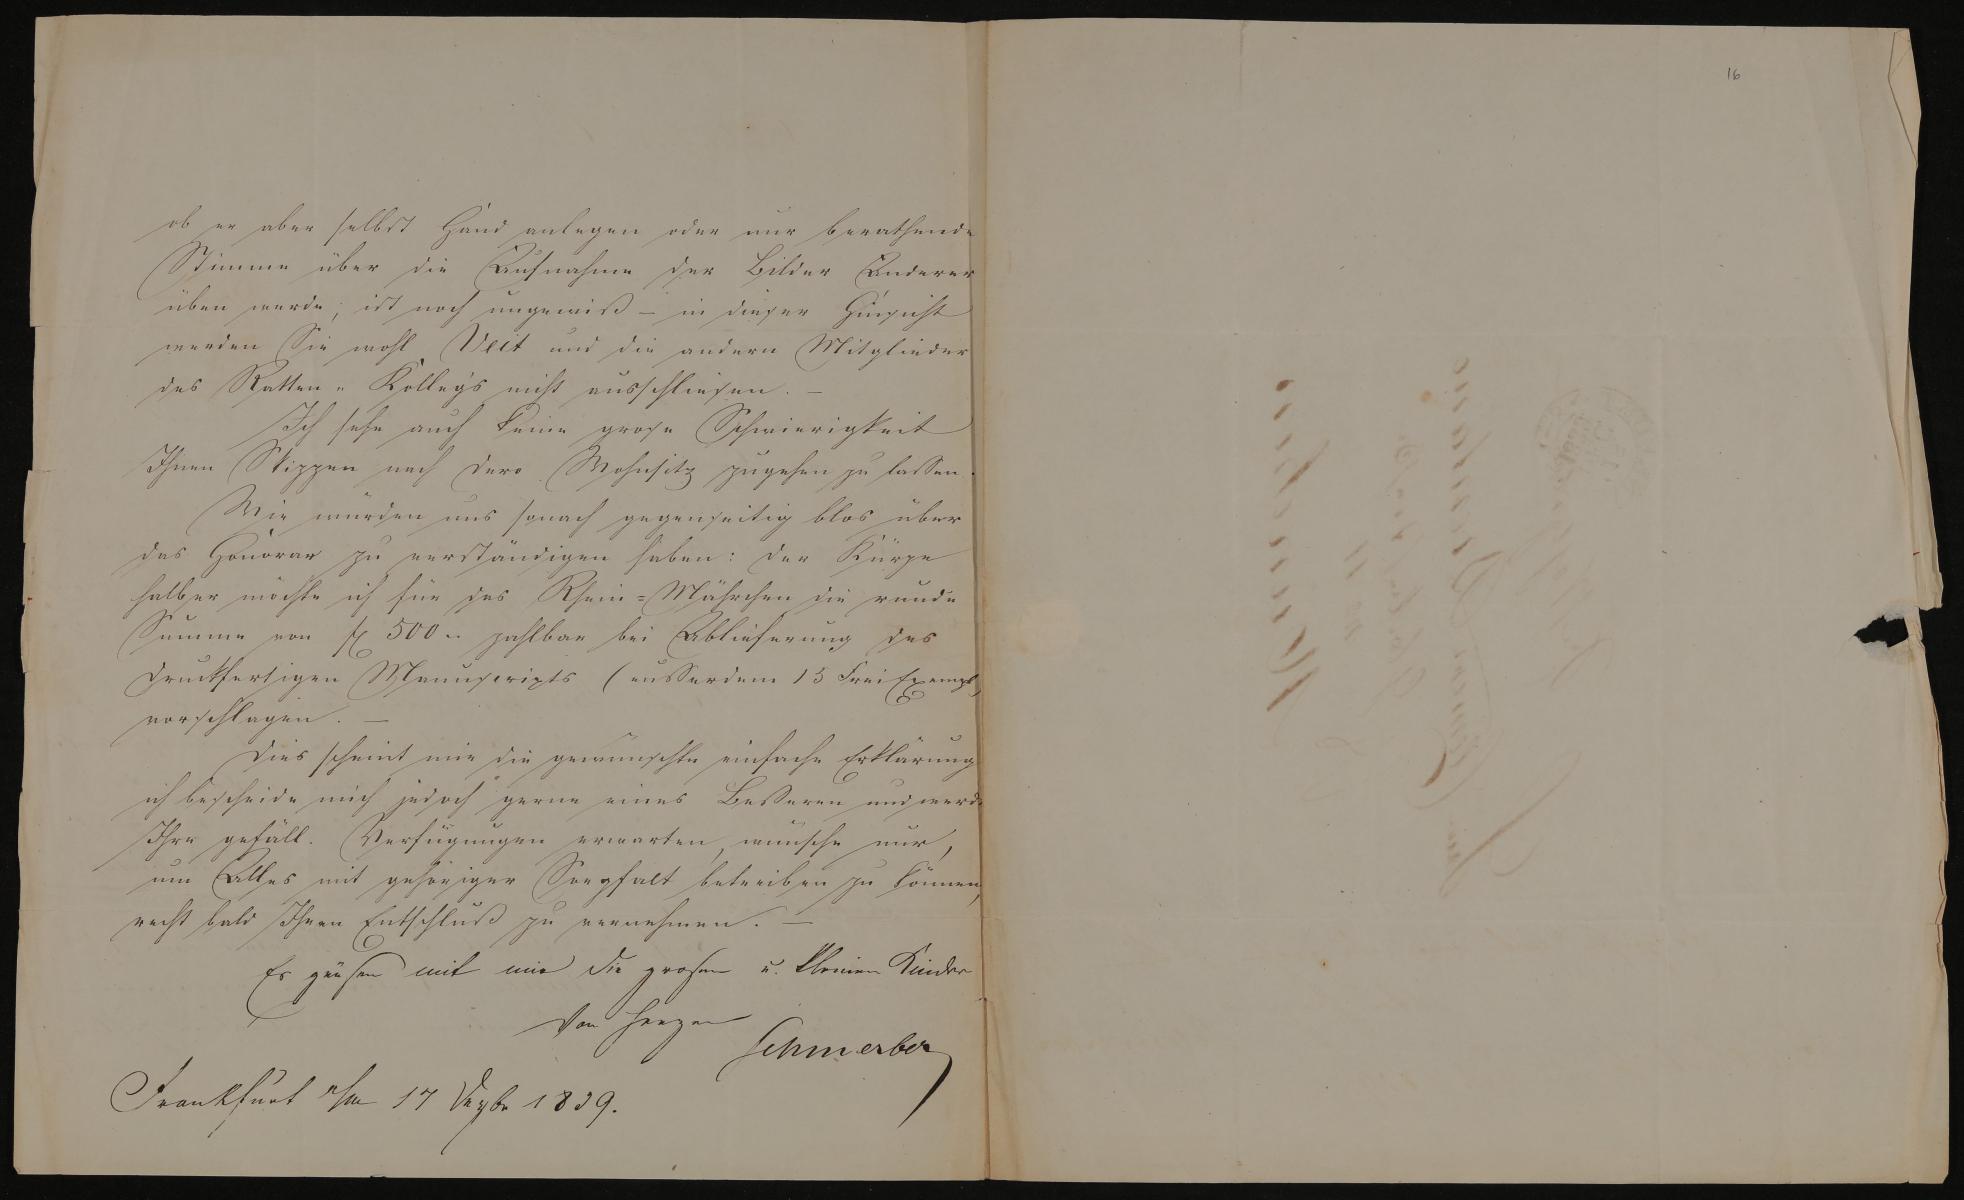 ob er aber selbst Hand anlegen oder nur berathende
Stimme über die Aufnahme der Bilder Anderer
üben werde, ist noch ungewiß – in dieser Hinsicht
werden Sie wohl Veit und die andern Mitglieder
des Ratten-Kollegs nicht ausschliesen. –
Ich sehe auch keine grose Schwierigkeit
Ihnen Skizzen nach dero Wohnsitz zugehen zu lassen.
Wir würden uns sonach gegenseitig blos über
das Honorar zu verständigen haben: der Kürze
halber möchte ich für das Rhein=Mährchen die runde
Summe von f 500.. zahlbar bei Ablieferung des
druckfertigen Manuscripts (ausserdem 15 Frei Exempl.
vorschlagen. –
Dies scheint mir die gewünschte einfache Erklärung
ich bescheide mich jedoch gerne eines Besseren und werde
Ihre gefäll. Verfügungen erwarten, wünsche nur,
um Alles mit gehöriger Sorgfalt betreiben zu können,
recht bald Ihren Entschluß zu vernehmen. –
Es grüsen mit mir die grosen u. kleinen Kinder
Von Herzen
Schmerber
Frankfurt a/m 17 Dezbr 1839.
16